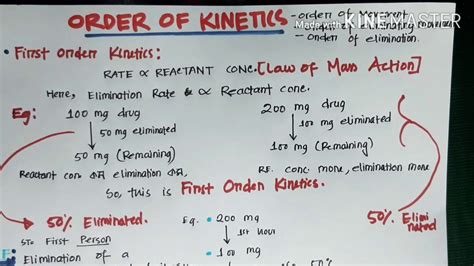 ORDER OF KINETICS
- orderr of Movement
Made with KINEMASTER
- Orderr of elimination.
• First Orderr Kinetics:
RATE ∝ REACTANT CONC. [Law of Mass Action]
Here, Elimination Rate ∝ Reactant conc.
Eg: 100 mg drug
↓ 50 mg eliminated
50 mg (Remaining)
Reactant conc elimination
200 mg drug
↓ 100 mg eliminated
100 mg (Remaining)
RE. conc more, elimination more
So, this is First Orderr Kinetics.
50% Eliminated.
50% Elimi
nated
First Person
Elimination of a
Eg. • 200 mg
↓ 1st Hour
• 100 mg